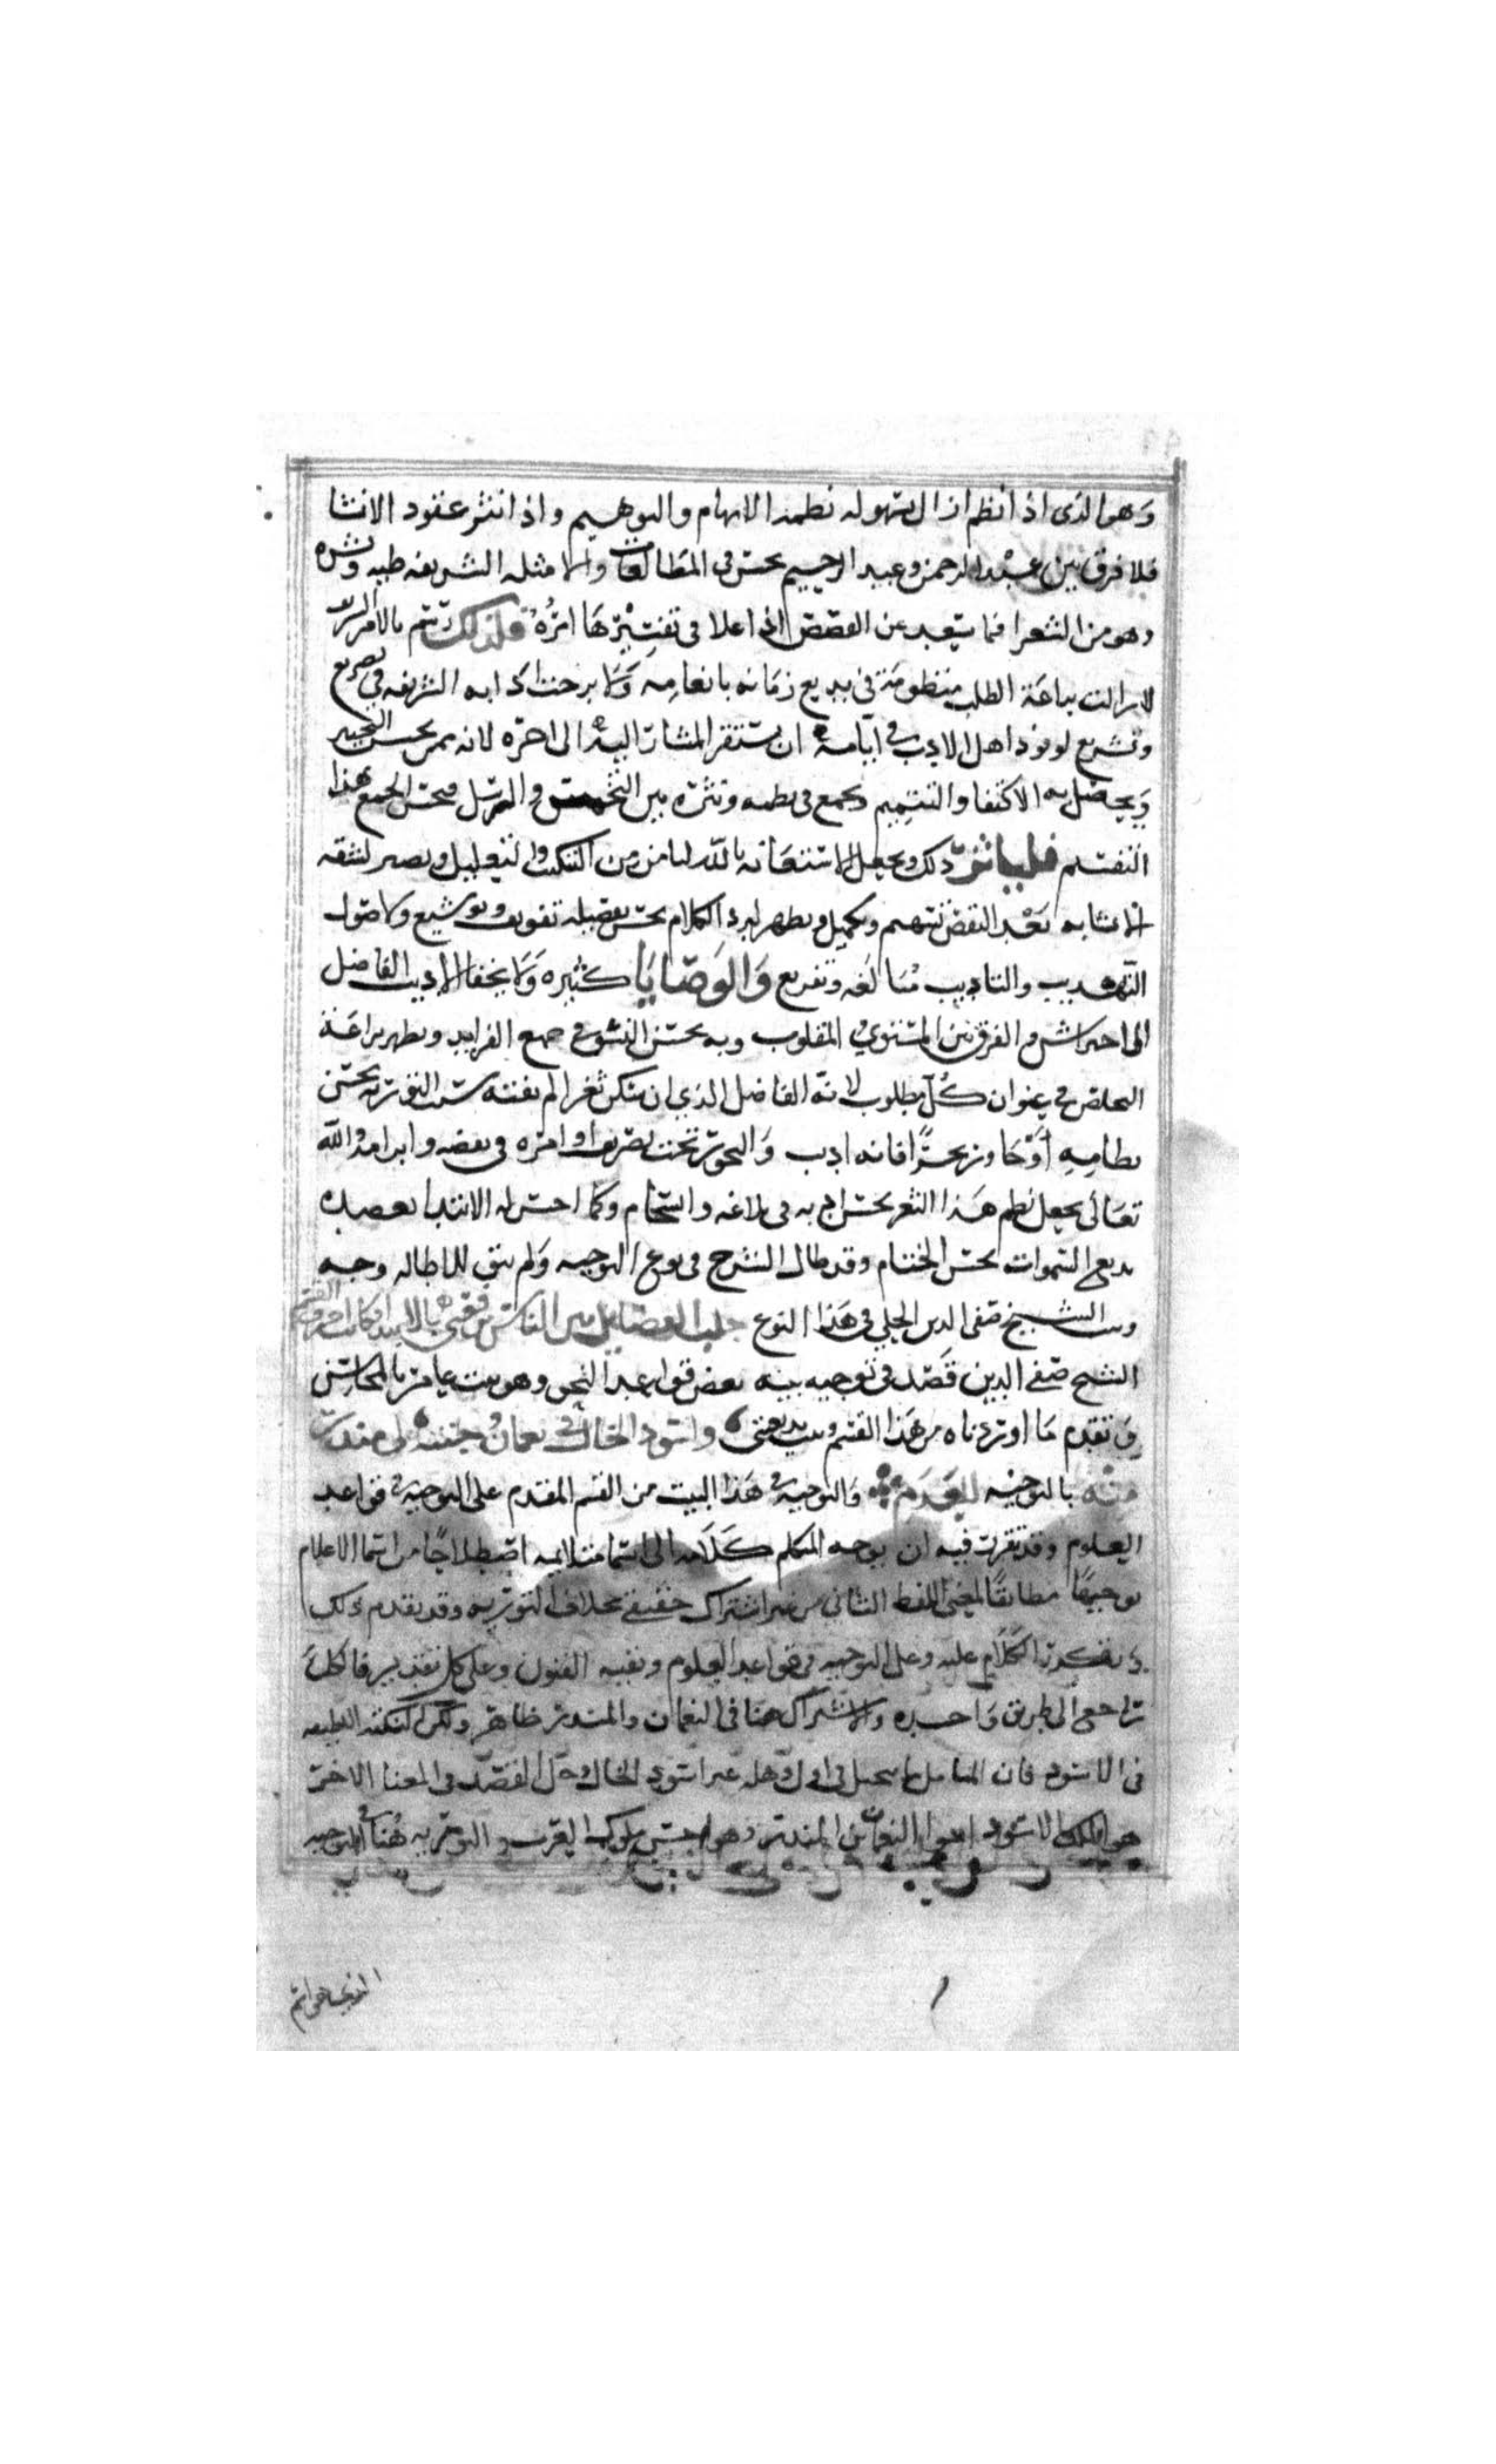 وهو الذى اذا نظم ازال بسهوله نظمه الابهام والتوهيم واذا نثر عقود الانشا
فلا فرق بين عبد الرحمن وعبد الرحيم بحسن فى المطالعات والامثله الشريفه طيه ونشره
وهو من الشعرا فما يبعد عن القصص اذا علا فى تفسيرها امره فلذلك رسم بالامر
لا زالت براعة الطلب منظومة فى بديع زمانه بانعامه ولا برحت ادابه الشريفه فى تصريع
وتشريع لوفود اهل الادب فى ايامه ان يستقر المشار اليه الى اخره لانه ممن يحسن
ويحصل به الاكتفا والتتميم ويجمع فى نظمه ونثره بين والترسل فيحسن الجمع هذا
التقسيم فليباشر ذلك ويجعل الاستعانة بالله له من التنكيت والتعليل ويصير لشقه
الانشا به بعد النقص تتميم وتكميل ويظهر لبرد الكلام بحسن تفصيله تفويف وتوشيع ولاصول
التهذيب والتاديب مبالغه وتفريع والوصايا كثيره ولا يخفا الاديب الفاضل
الى احتراس والفرق بين المستوى والمقلوب وبه يحسن النسق فى جمع الفرايد ويظهر براعة
التخلص فى عنوان كل مطلوب لانه الفاضل الذى ان سكن ثغرا لم يفتنه شنب التورية بحسن
نظامه او جاور بحرا فانه اديب والبحور تحت تصريف اوامره فى نقضه وابرامه والله
تعالى يجعل نظم هذا الثغر بحسن ادبه فى بلاغه وانسجام وكما احسن له الابتدا بعصده
بديع السموات بحسن الختام وقد طال الشرح فى نوع التوجيه ولم يبق للاطاله وجه
وبيت الشيخ صفى الدين الحلى فى هذا النوع
الشيخ صفى الدين قصد فى توجيه بيته بعض قواعد النحو وهو بيت عامر بالمحاسن
وتقدم ما اوردناه من هذا القسم وبيت بديعيتى واسود الخال فى نعمان وجنته لى منذر
منه بالتوجيه للعدم والتوجيه فى هذا البيت من القسم المقدم على التوجيه فى قواعد
العلوم وقد تقرر فيه ان يوجه المتكلم كلامه الى اسما متلايمه اصطلاحًا من اسما الاعلام
توجيهًا مطابقًا لمعنى اللفظ الثانى من غير اشتراك حقيقى بخلاف التوريه وقد تقدم ذلك
الكلام عليه وعلى التوجيه فى قواعد العلوم وبقية الفنون وعلى كل تقدير فالكل
راجع الى طريق واحده والاشتراك هنا فى النعمان والمنذر ظاهر ولكن النكته اللطيفه
فى الاسود فان المتامل ما يتخيل فى اول وهله غير اسود الخال وجل القصد فى المعنا الاخر
هو الملك الاسود اخوا النعمان بن المنذر وهو من ملوك العرب والتوريه هنا فى التوجيه